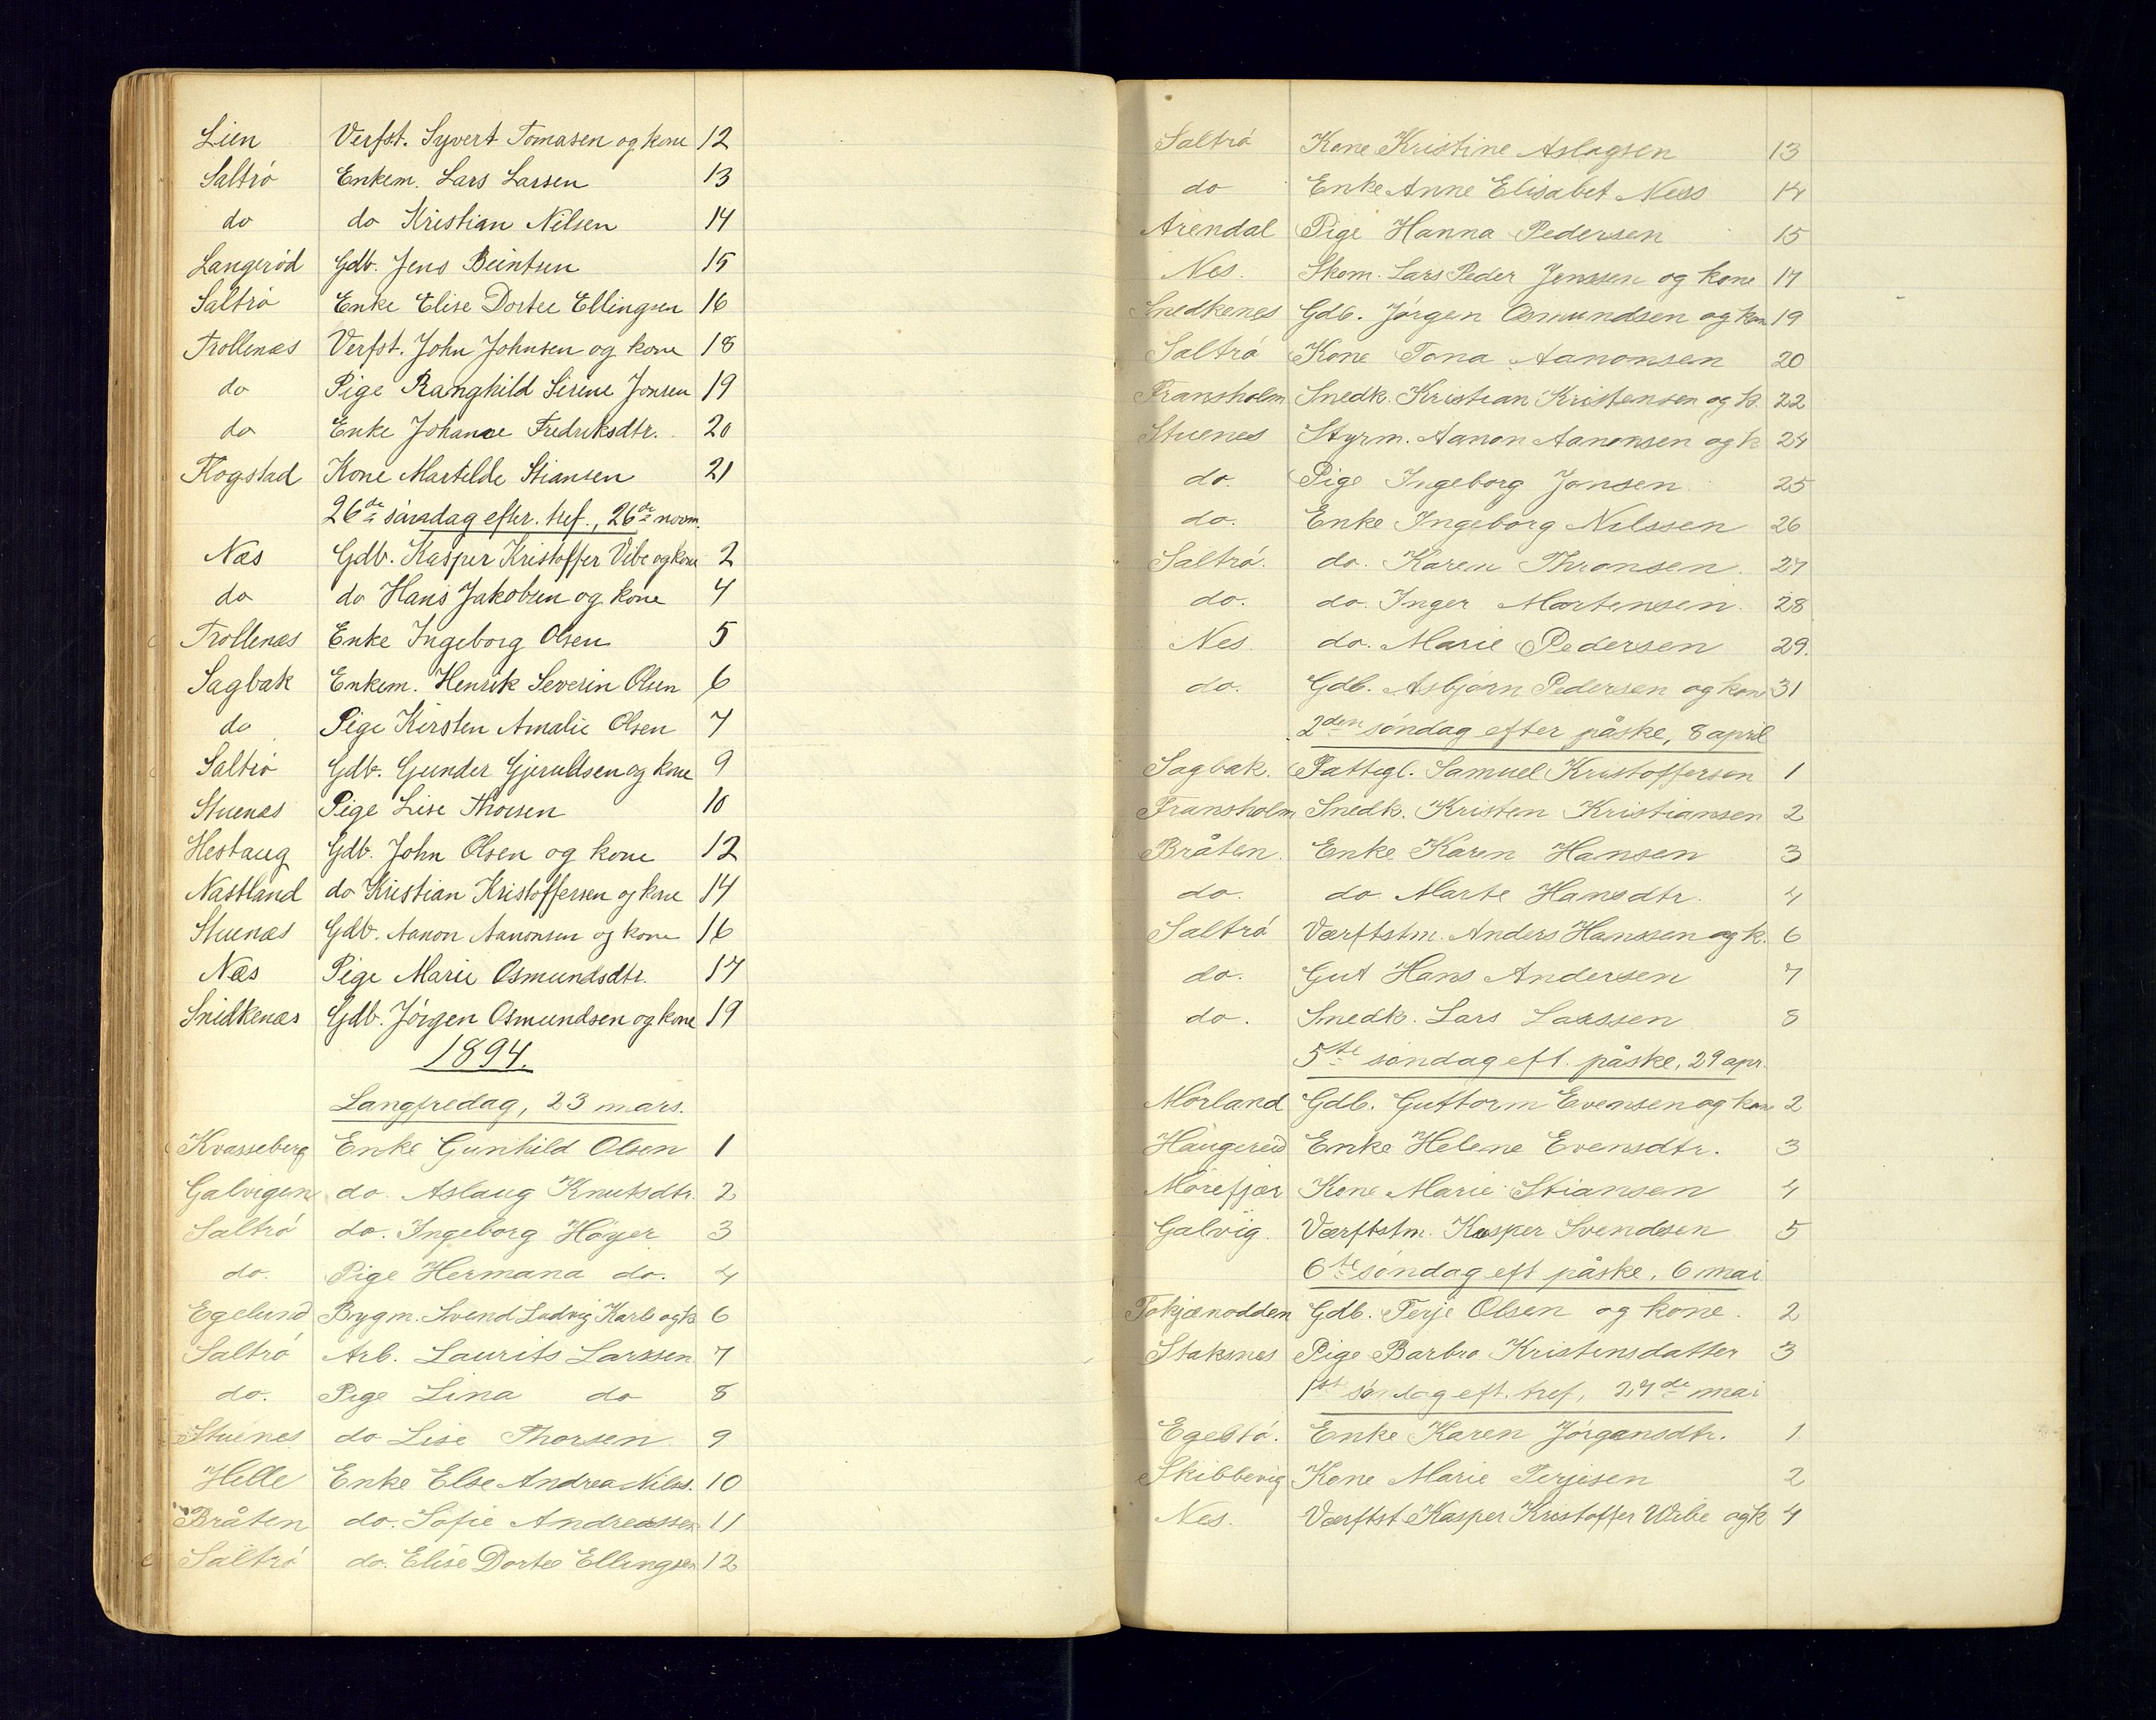 Lien Verfst. Syvert Tomasen og kone 12
Saltrö Enkem. Lars Larsen 13
do do Kristian Nilsen 14
Langeröd Gdb. Jens Beintsen 15
Saltrö Enke Elise Dortee Ellingsen 16
Trollenæs Verfst. John Johnsen og kone 18
do Pige Ranghild Sirine Jonsen 19
do Enke Johanne Fredriksdtr. 20
Flogstad Kone Martelde Stiansen 21
26de söndag efter. tref., 26de novm.
Næs Gdb. Kasper Kristoffer Vibe og kone 2
do do Hans Jakobsen og kone 4
Trollenæs Enke Ingeborg Olsen 5
Sagbak Enkem. Henrik Severin Olsen 6
do Pige Kirsten Amalie Olsen 7
Saltrö Gdb. Gunder Gjeruldsen og kone 9
Stuenæs Pige Lise Thorsen 10
Hestaug Gdb. John Olsen og kone 12
Nastland do Kristian Kristoffersen og kone 14
Stuenæs Gdb. Aanon Aanonsen og kone 16
Næs Pige Marie Osmundsdtr. 17
Snidkenæs Gdb. Jörgen Osmundsen og kone 19
1894.
Langfredag, 23 mars.
Kvasseberg Enke Gunhild Olsen 1
Galvigen do. Aslaug Knutsdtr. 2
Saltrö do. Ingeborg Höyer 3
do. Pige Hermana do. 4
Egelund Bygm. Svend Ludvig Karls og k. 6
Saltrö Arb. Laurits Larssen 7
do. Pige Lina do 8
Stuenes do Lise Thorsen 9
Helle Enke Else Andrea Nilss. 10
Bråten do. Sofie Andreassen 11
Saltrö do. Elise Dortee Ellingsen 12
Saltrö Kone Kristine Aslagsen 13
do Enke Anne Elisabet Ness 14
Arendal Pige Hanna Pedersen 15
Nes. Skom. Lars Peder Jenssen og kone 17
Snedkenes Gdb. Jörgen Osmundsen og kone 19
Saltrö Kone Tona Aanonsen 20
Fransholm Snedk. Kristian Kristensen og k. 22
Stuenes Styrm. Aanon Aanonsen og k 24
do. Pige Ingeborg Jonsen 25
do. Enke Ingeborg Nilssen 26
Saltrö. do. Karen Thronsen. 27
do. do. Inger Mortensen. 28
Nes. do. Marie Pedersen 29.
do. Gdb. Asbjörn Pedersen og kone 31
2den söndag efter påske, 8 april
Sagbak. Pattegl. Samuel Kristoffersen 1
Fransholm Snedk. Kristen Kristiansen 2
Bråten. Enke Karen Hansen 3
do. do. Marte Hansdtr. 4
Saltrö Værftstm. Anders Hanssen og k. 6
do. Gut Hans Andersen 7
do. Snedk. Lars Larssen 8
5te söndag eft. påske, 29 apr.
Mörland Gdb. Guttorm Evensen og kone 2
Haugereid Enke Helene Evensdtr. 3
Mörefjær Kone Marie Stiansen 4
Galvig. Værftstm. Kasper Svendsen 5
6te söndag eft påske, 6 mai
Tokjænodden Gdb. Terje Olsen og kone. 2
Staksnes Pige Barbro Kristensdatter 3
1ste söndag eft. tref, 27de mai
Egestö. Enke Karen Jörgensdtr. 1
Skibbevig Kone Marie Terjesen 2
Nes. Værftst Kasper Kristoffer Wibe og k 4